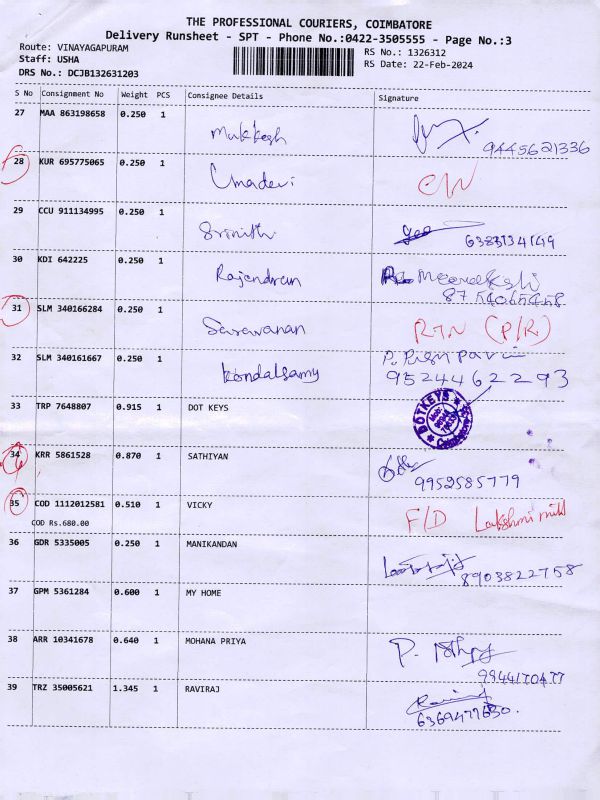 THE PROFESSIONAL COURIERS, COIMBATORE
Delivery Runsheet - SPT - Phone No.:0422-3505555 - Page No.:3
Route: VINAYAGAPURAM
RS No.: 1326312
Staff: USHA
RS Date: 22-Feb-2024
DRS No.: DCJB132631203
S No Consignment No Weight PCS Consignee Details Signature
27 MAA 863198658 0.250 1 Mukkesh 9445621336
28 KUR 695775065 0.250 1 Umadevi C/N
29 CCU 911134995 0.250 1 Srinith
30 KDI 642225 0.250 1 Rajendran Meenakshi
8754065458
31 SLM 340166284 0.250 1 Saravanan RTN (P/R)
32 SLM 340161667 0.250 1 Kondalsamy
9524462293
33 TRP 7648807 0.915 1 DOT KEYS DOTKEYS
34 KRR 5861528 0.870 1 SATHIYAN
9952585779
35 COD 1112012581 0.510 1 VICKY F/D Lakshmi mill
COD Rs.680.00
36 GDR 5335005 0.250 1 MANIKANDAN
8903822758
37 GPM 5361284 0.600 1 MY HOME
38 ARR 10341678 0.640 1 MOHANA PRIYA P.
9944170477
39 TRZ 35005621 1.345 1 RAVIRAJ
6369477630.